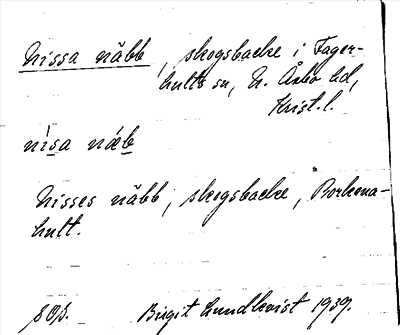 Nissa näbb, skogsbacke i Fager-
hults sn, N. Åsbo hd,
Krist. l.
nìsa näb
Nisses näbb, skogsbacke, Borkena-
hult.
Birgit Lundkvist 1939.